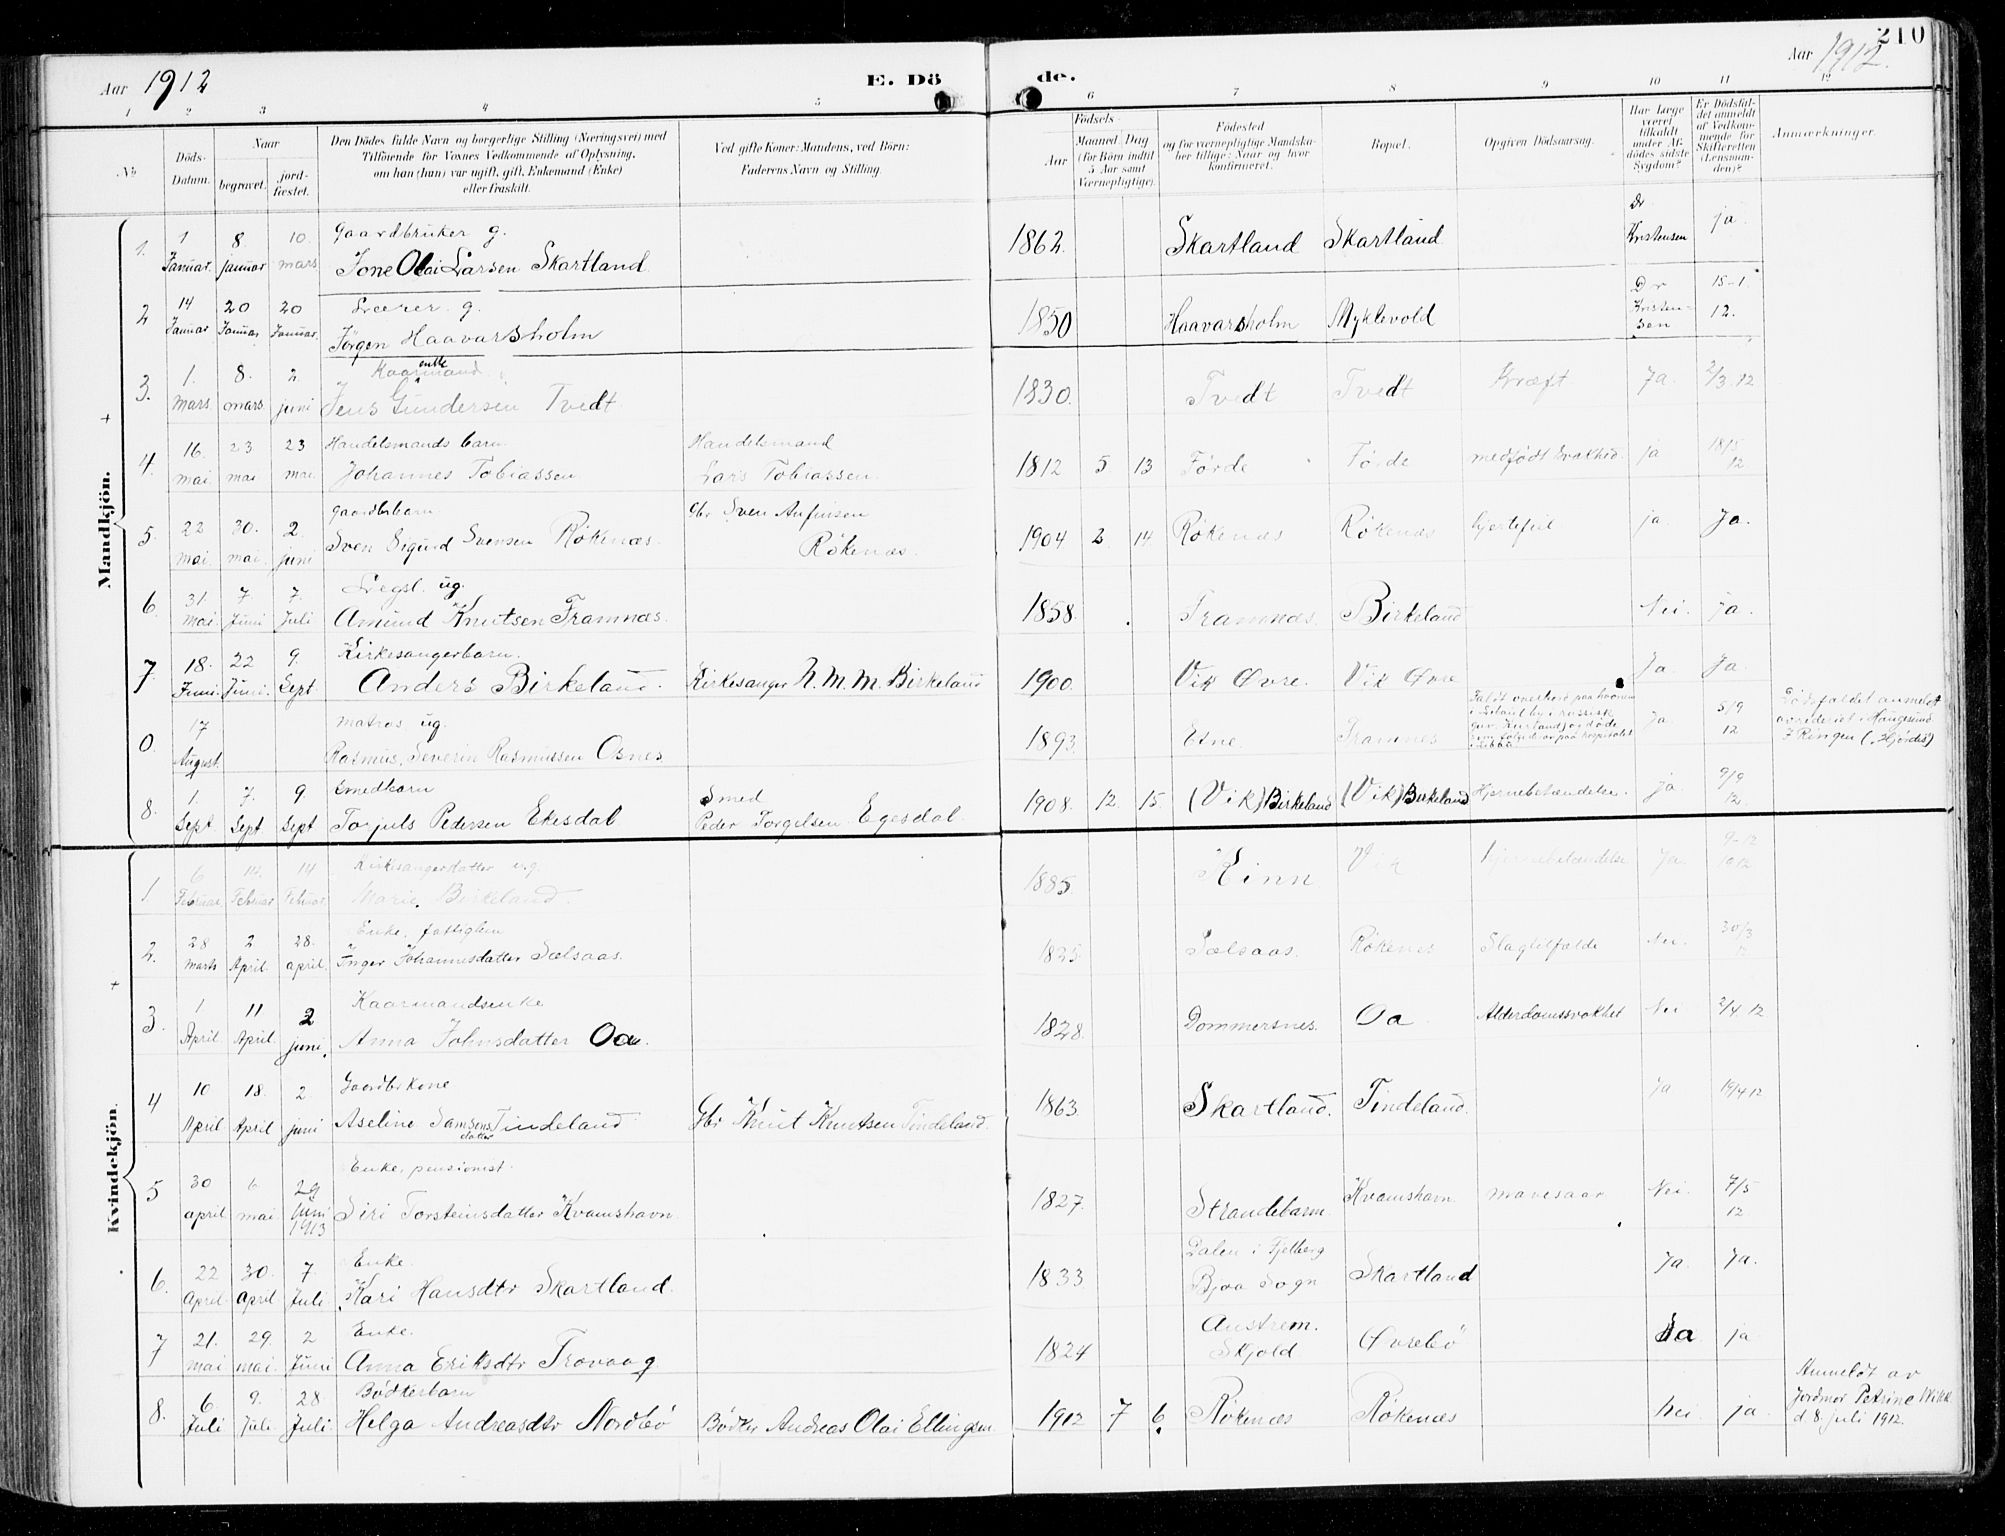 210
Aar 1912 E. Dö de. Aar 1912.
1 2 3 4 5 6 7 8 9 10 11 12
No.
Döds-Datum.
Naar
begravet.
jord-fæstet.
Den Dödes fulde Navn og borgerlige Stilling (Næringsvei) med
Tilföiende för Voxnes Vedkommende af Oplysning,
om han (hun) var ugift, gift, Enkemand (Enke)
eller fraskilt.
Ved gifte Koner: Mandens, ved Börn:
Faderens Navn og Stilling.
Födsels-
Aar
Maaned Dag
(for Börn indtil
5 Aar samt
Værnepligtige).
Födested
og for værnepligtige Mandska-
ber tillige: Naar og hvor
konfirmeret.
Bopæl.
Opgiven Dödsaarsag.
Har Læge
været
tilkaldt
under Af-
dödes sidste
Sygdom?
Er Dödsfal-
det anmeldt
af Vedkom-
mende for
Skifteretten
(Lensman-
den)?
Anmærkninger.
Mandkjön.
1. 1 Januar. 8 januar 10. mars Gaardbruker g.
Jone Olai Larsen Skartland 1862. Skartland Skartland Dr Kristensen ja.
2 14 Januar 20 Januar 20 Januar. Lærer. g.
Jörgen Haavarsholm 1850 Haavarsholm Myklevold Dr Kristensen 15-1 12.
3. 1. mars. 8. mars. 2 juni Kaarmand enke
Jens Gundersen Tvedt 1830. Tvedt Tvedt Kræft. Ja. 2/3.12
4. 16. mai. 23 mai 23 mai. Handelsmands barn
Johannes Tobiassen Handelsmand
Lars Tobiassen. 1812 5 13 Førde Førde medfödt svakhed. ja 18/5 12
5. 22 mai. 30. mai 2. juni gaardbr barn
Sven Sigurd Svensen Rökenæs. Gbr Sven Anfinsen
Rökenæs. 1904 2. 14 Rökenæs Rökenæs hjertefeil ja. Ja.
6. 31. Mai. 7 Juni 7 Juli Legsl. ug.
Amund Knutsen Framnæs. 1858. Framnæs. Birkeland Nei. ja.
7 18. Juni. 22 Juni. 9. Sept. Kirkesangerbarn.
Anders Birkeland. Kirkesanger N. M. M. Birkeland 1900. Vik Øvre. Vik Øvre Ja. Ja.
0. 17 August. matros ug.
Rasmus Severin Rasmussen Osnes 1893. Etne. Framnes Ja. 5/9 12
Dödsfaldet anmeldt
av rederiet i Haugesund
8. 1. Sept. 7. Sept 9. Sept Smedbarn
Torjuls Pedersen Ekesdal Smed
Peder Torgelsen Egesdal. 1908. 12. 15 (Vik) Birkeland (Vik) Birkeland Hjernebetændelse. ja. 9/9 12.
Kvindekjön.
1 6 Februar 14. Februar 14 Februar Kirkesangerdatter ug.
Marie Birkeland. 1885 Kinn Vik hjernebetændelse Ja. 9-12 10 12
2. 28 marts 2 April. 28. april Enke, fattiglem
Inger Johannesdatter Sælsaas. 1825 Sælsaas. Rökenes Slagtilfælde Nei. 30/3 12
3. 1 April. 11 April. 2 juni. Kaarmandsenke
Anna Johnsdatter Oa. 1828. Dommersnes. Oa Alderdomssvakhet Nei 2/4 12
4 10 April 18. April 2 juni Gaardbr kone
Aseline Samsonsdatter Tindeland Gbr Knut Knutsen Tindeland. 1863. Skartland. Tindeland. Ja 19/4 12
5 30 april 6 mai. 29 juni 1913 Enke, pensionist.
Siri Torsteinsdatter Kvamshavn. 1827. Strandebarm. Kvamshavn mavesaar Nei. 7/5 12
6. 22 April. 30. april 7. Juli Enke.
Kari Hansdtr Skartland. 1833 Dalen i Fjelberg
Bjoa Sogn Skartland Ja. Ja.
7 21. mai 29. mai. 2 Juni Enke.
Anna Eriksdtr Trovaag 1824 Austrem.
Skjold Øvrebö Ja ja
8. 6. Juli 9. Juli. 28. Juli. Bödkerbarn
Helga Andreasdtr Nordbö Bödker Andreas Olai Ellingsen. 1912 7 6. Rökenæs Rökenæs Nei ja.
Anmeldt av
Jordmor Petrine Wiik
d. 8. juli 1912.